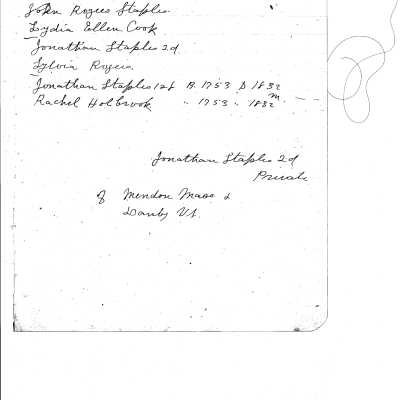 John Rogers Staples
Lydia Ellen Cook
Jonathan Staples 2d
Sylvia Rogers
Jonathan Staples 1st B. 1753 D. 1832
Rachel Holbrook " 1753 " 1832
m
Jonathan Staples 2d
Private
of Mendon Mass &
Danby Vt.